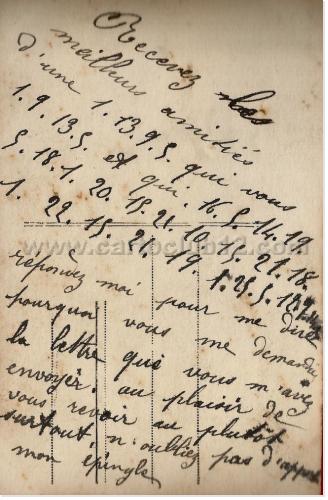 Recevez les
meilleurs amitiés
d'une 1. 13. 9. 5. qui vous
1. 9. 13. 5. et qui. 16. 5. 14. 18.
5. 18. 1. 20. 15. 21. 10. 15. 21. 18.
1. 22. 15. 21. 19. 1. 25. 5. 18.
www.cartoclub12.com
répondez moi pour me dire
pourquoi vous me demandez
la lettre que vous m'avez
envoyer. au plaisir de
vous revoir au plutôt
surtout, n'oubliez pas d'apport
mon épingle